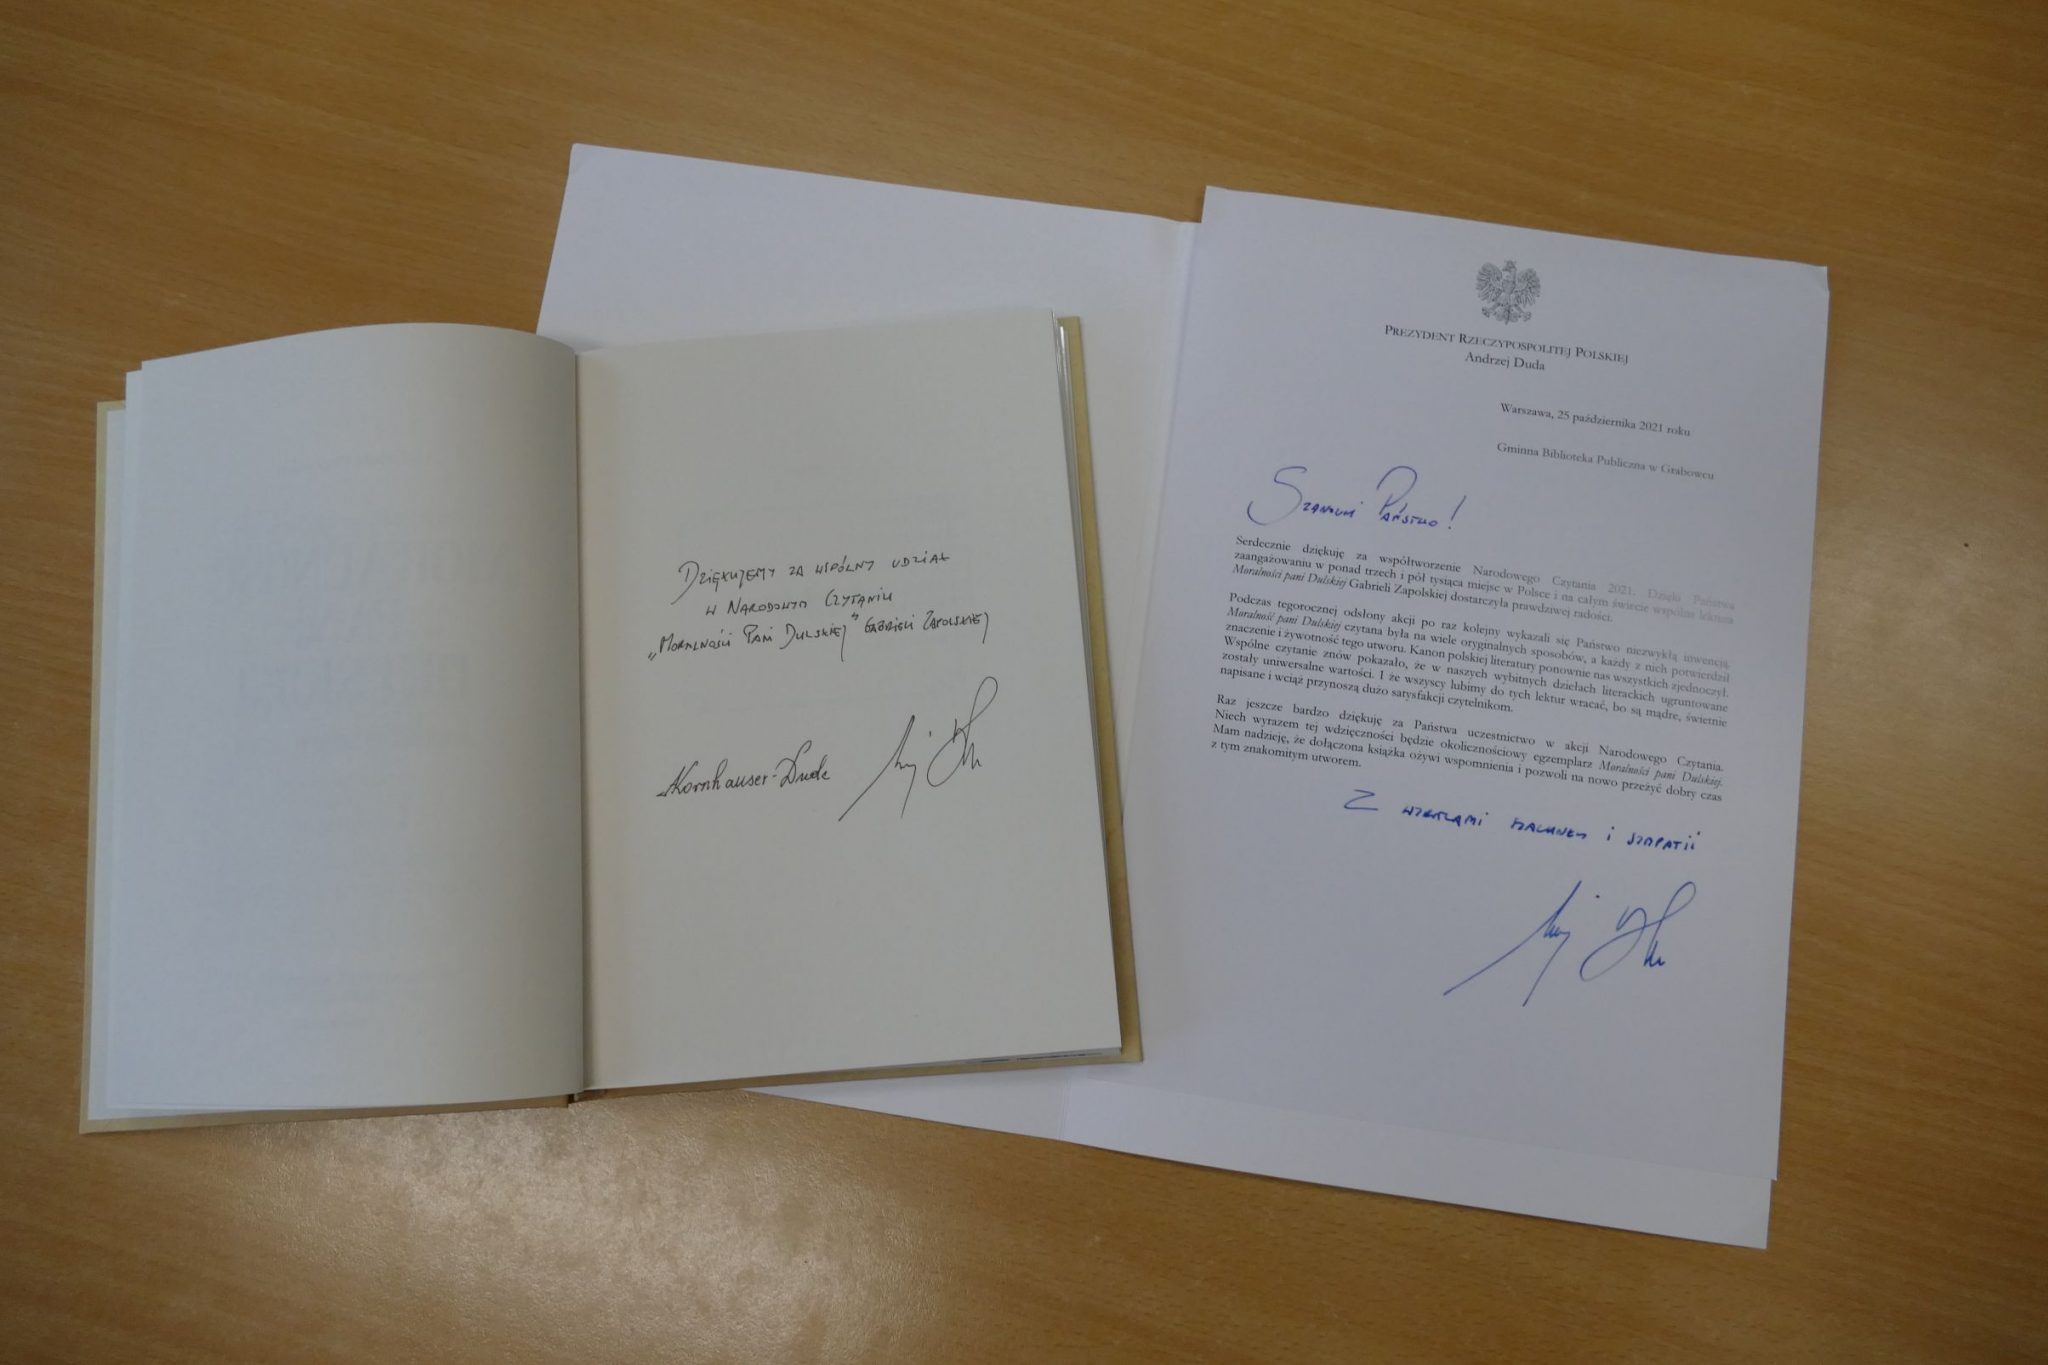 Dziękujemy za wspólny udział
w Narodowym Czytaniu
„Moralności Pani Dulskiej” Gabrieli Zapolskiej
AKornhauser-Duda
PREZYDENT RZECZYPOSPOLITEJ POLSKIEJ
Andrzej Duda
Warszawa, 25 października 2021 roku
Gminna Biblioteka Publiczna w Grabowcu
Szanowni Państwo!
Serdecznie dziękuję za współtworzenie Narodowego Czytania 2021. Dzięki Państwa
zaangażowaniu w ponad trzech i pół tysiąca miejsc w Polsce i na całym świecie wspólna lektura
Moralności pani Dulskiej Gabrieli Zapolskiej dostarczyła prawdziwej radości.
Podczas tegorocznej odsłony akcji po raz kolejny wykazali się Państwo niezwykłą inwencją.
Moralność pani Dulskiej czytana była na wiele oryginalnych sposobów, a każdy z nich potwierdził
znaczenie i żywotność tego utworu. Kanon polskiej literatury ponownie nas wszystkich zjednoczył.
Wspólne czytanie znów pokazało, że w naszych wybitnych dziełach literackich ugruntowane
zostały uniwersalne wartości. I że wszyscy lubimy do tych lektur wracać, bo są mądre, świetnie
napisane i wciąż przynoszą dużo satysfakcji czytelnikom.
Raz jeszcze bardzo dziękuję za Państwa uczestnictwo w akcji Narodowego Czytania.
Niech wyrazem tej wdzięczności będzie okolicznościowy egzemplarz Moralności pani Dulskiej.
Mam nadzieję, że dołączona książka ożywi wspomnienia i pozwoli na nowo przeżyć dobry czas
z tym znakomitym utworem.
Z wyrazami szacunku i sympatii